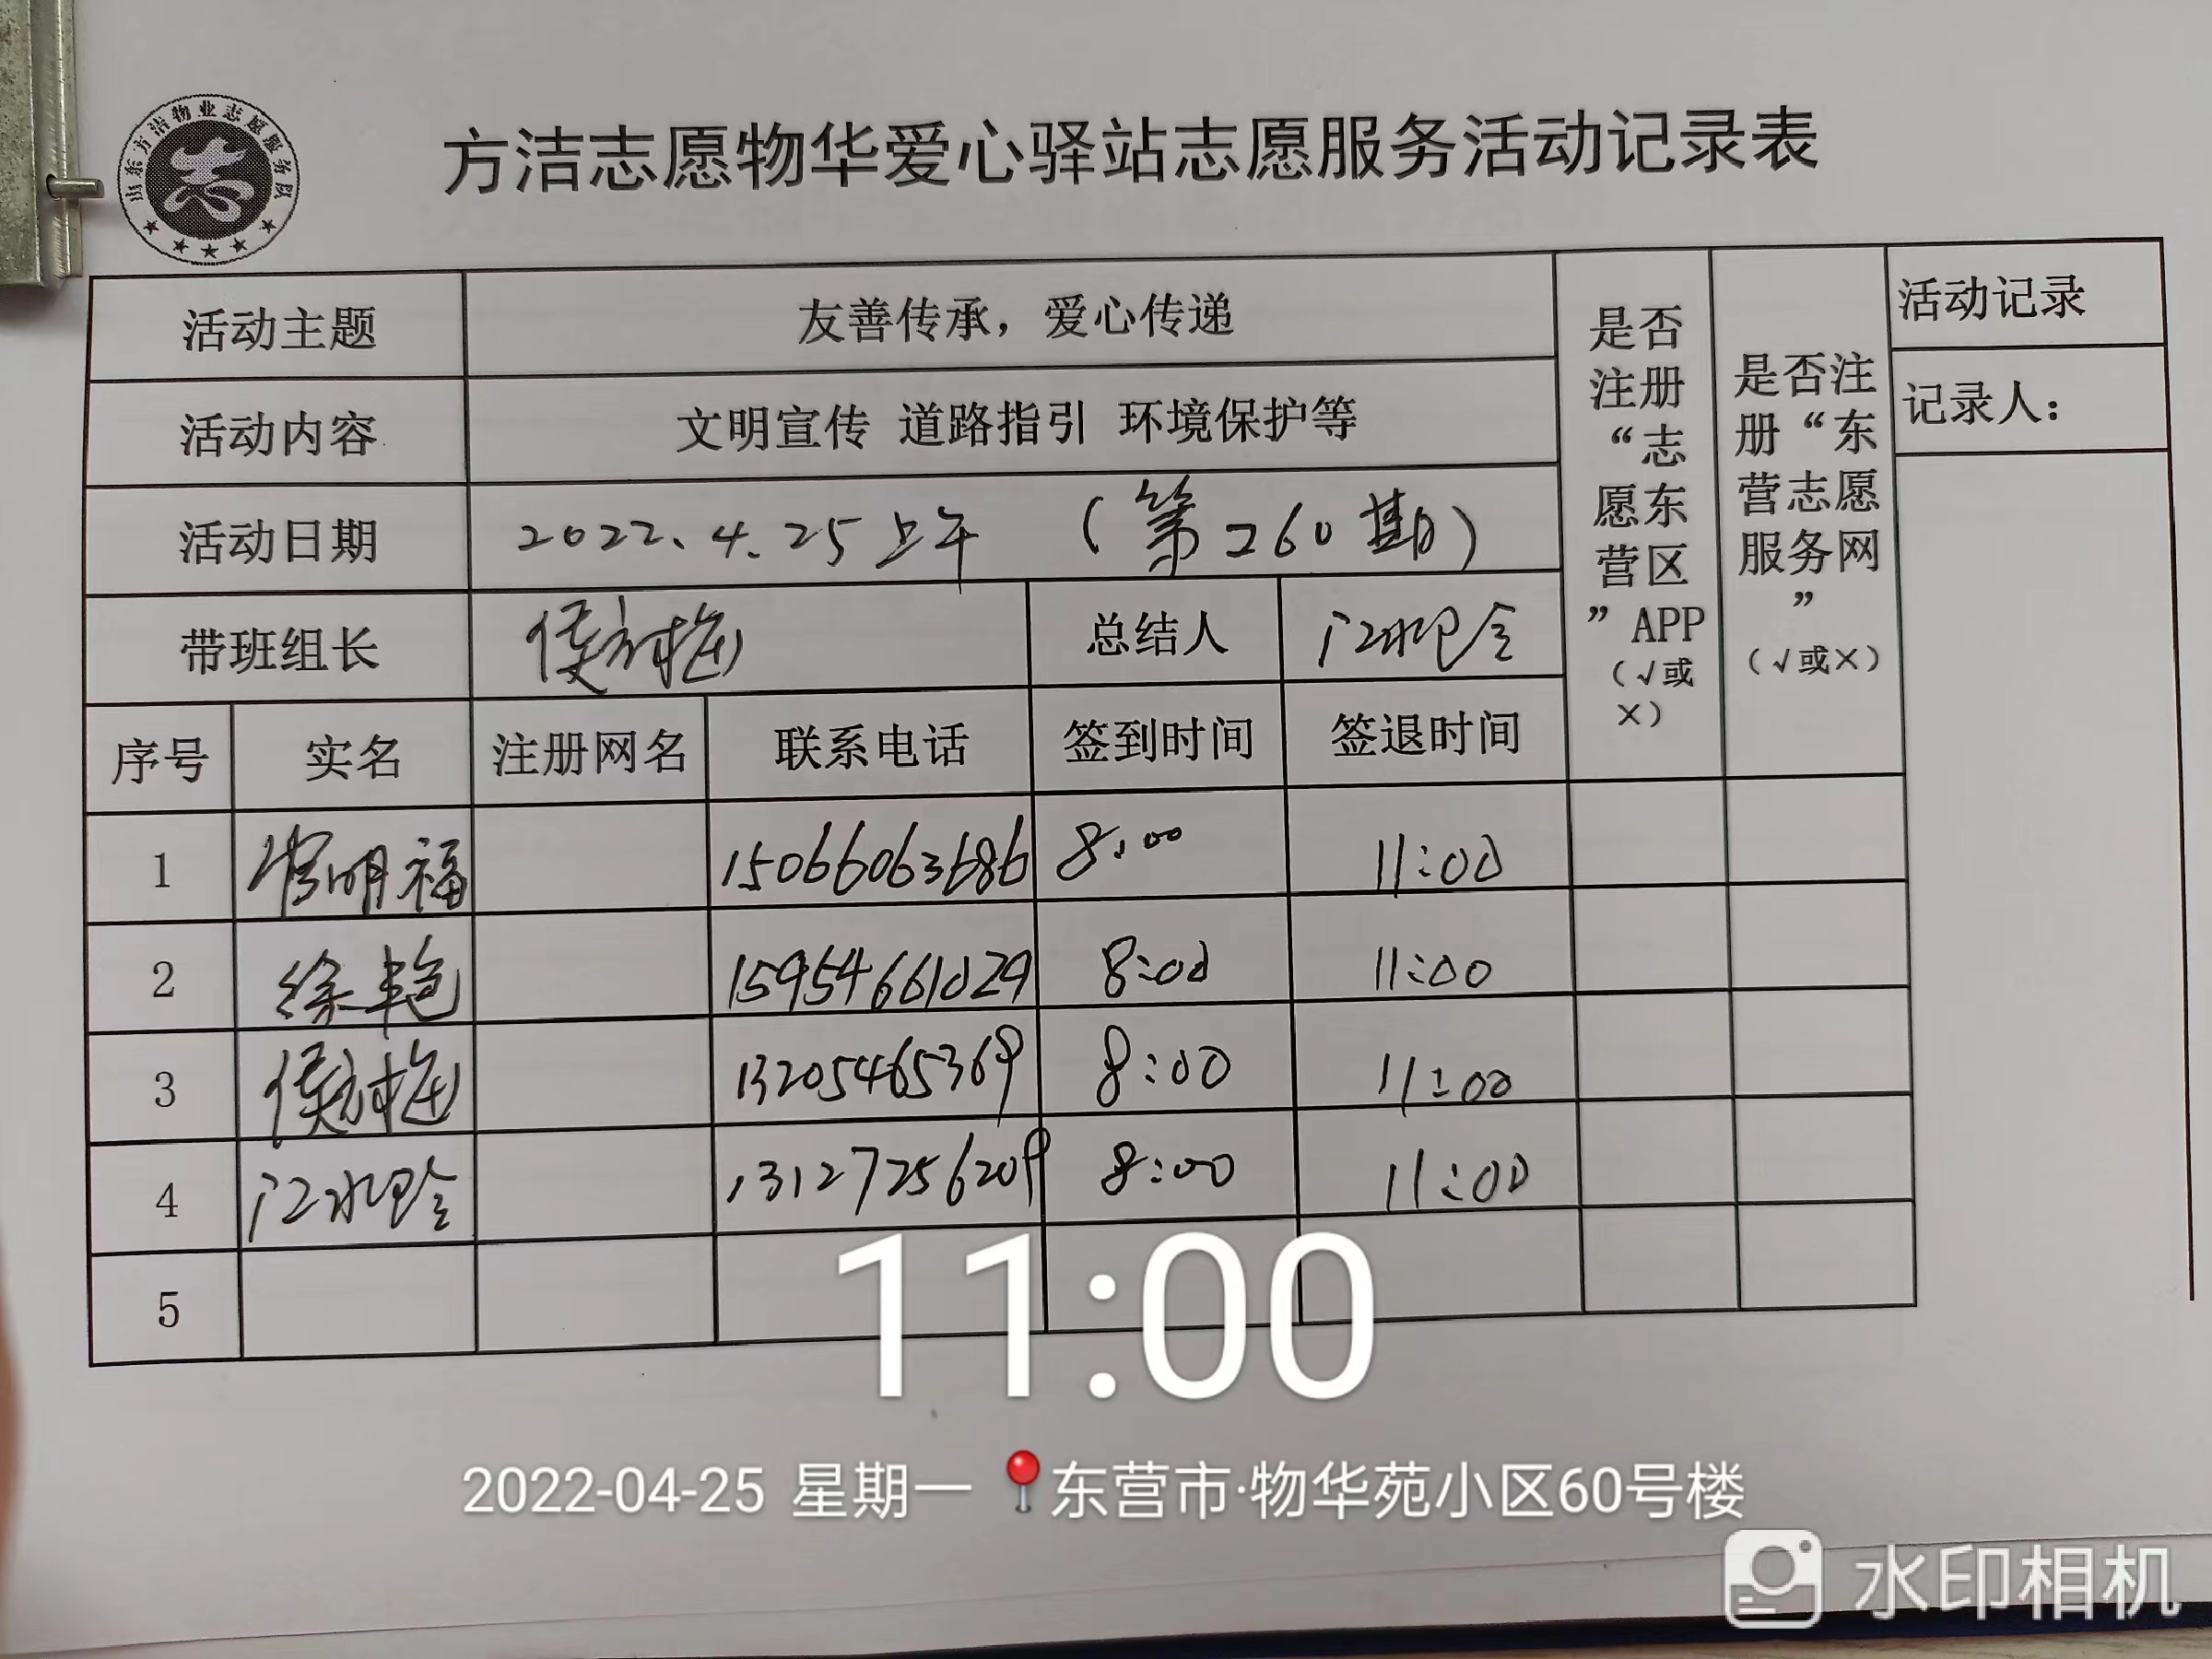 山东方洁物业志愿服务队
志
方洁志愿物华爱心驿站志愿服务活动记录表
活动主题 友善传承，爱心传递
活动内容 文明宣传 道路指引 环境保护等
活动日期 2022.4.25上午 （第260期）
带班组长 侯 总结人
是否
注册
“志
愿东
营区
”APP
（√或
×）
是否注
册“东
营志愿
服务网
”
（√或×）
活动记录
记录人：
序号 实名 注册网名 联系电话 签到时间 签退时间
1 明福 15066063686 8:00 11:00
2 徐艳 15954661029 8:00 11:00
3 侯 13205465369 8:00 11:00
4 13127256209 8:00 11:00
5
11:00
2022-04-25 星期一 东营市·物华苑小区60号楼
水印相机